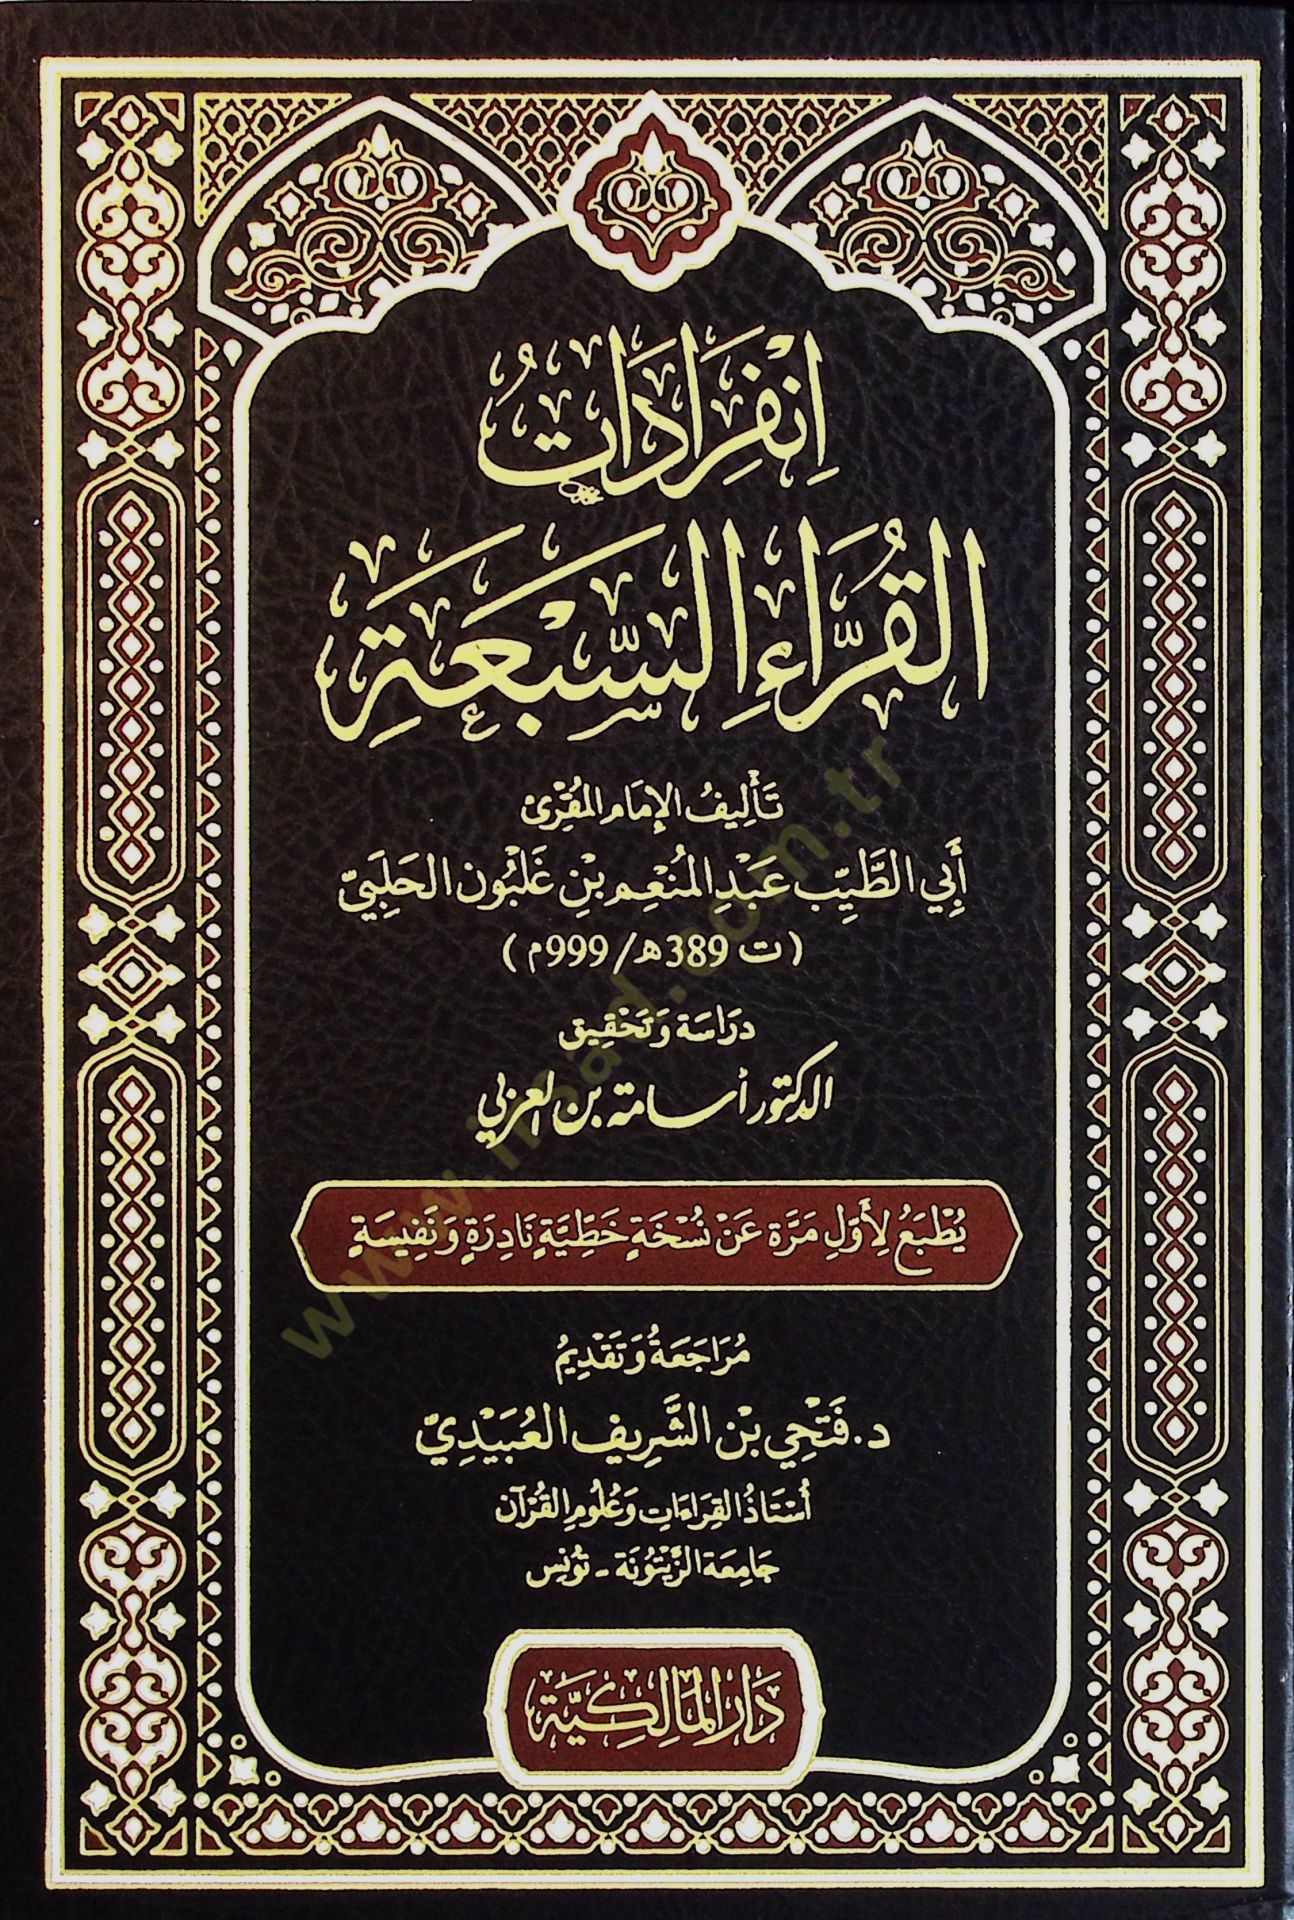 اِنْفِرَادَاتُ
القُرَّاءِ السَّبْعَةِ
تَأْلِيفُ الإِمَامِ المُقْرِئ
أَبِي الطَّيِّب عَبْدِ المُنْعِمِ بْنِ غَلْبُون الحَلَبِيّ
(ت 389هـ/999م)
دِرَاسَة وَتَحْقِيق
الدكتور أسامة بن العربي
يُطْبَعُ لِأَوَّلِ مَرَّة عَنْ نُسْخَةٍ خَطِّيَّةٍ نَادِرَةٍ وَنَفِيسَةٍ
مُرَاجَعَةُ وَتَقْدِيمُ
د. فَتْحِي بْن الشَّرِيف العُبَيْدِيّ
أُسْتَاذُ القِرَاءَاتِ وَعُلُومِ القُرْآن
جَامِعَة الزَّيْتُونَة - تُونِس
دَار المَالِكِيَّة
www.irsad.com.tr